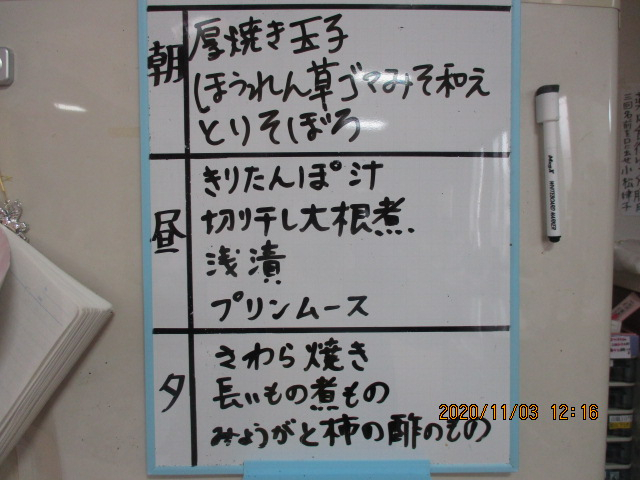 朝
厚焼き玉子
ほうれん草ゴマみそ和え
とりそぼろ
昼
きりたんぽ汁
切り干し大根煮
浅漬
プリンムース
夕
さわら焼き
長いもの煮もの
みょうがと柿の酢のもの
WHITEBOARD MARKER
2020/11/03 12:16